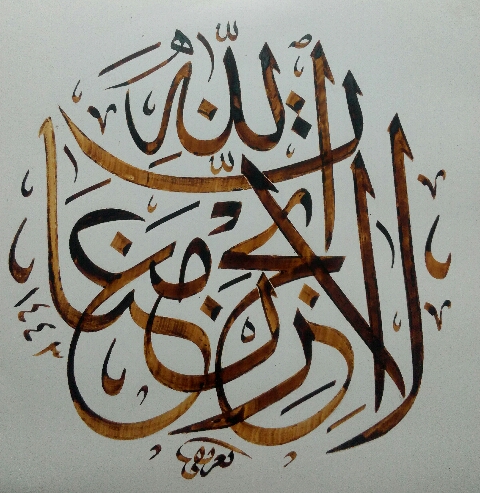 لا تحزن إن الله معنا
١٤٤٣